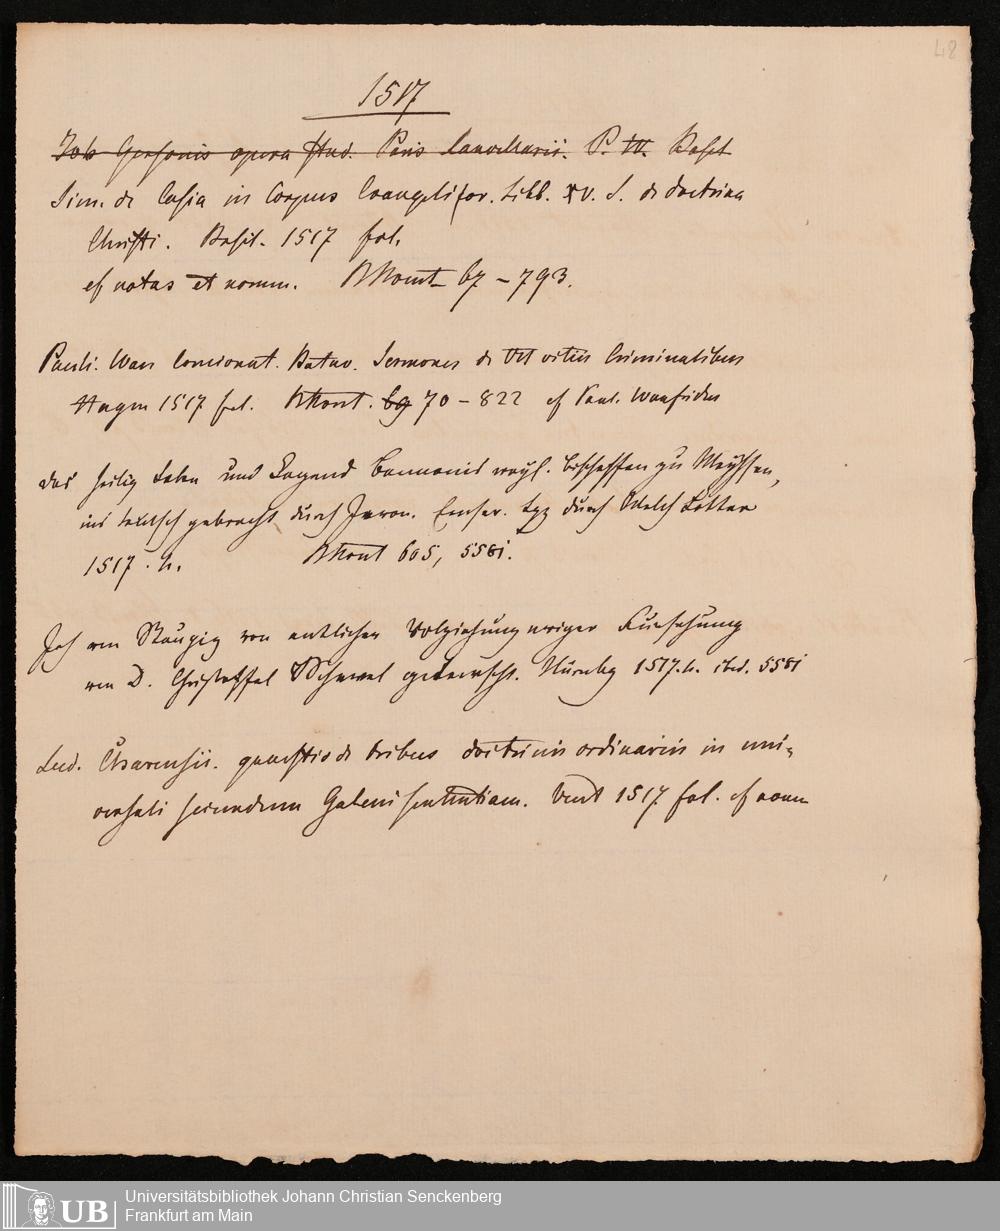 48
1517
Joh Gersonis opera Stud. Paris Cancellarii. P. IV. Basil
Sim. de Casia in Corpus Evangelior. Libb. XV. S. de doctrina
Christi. Basil. 1517 fol.
cf notas et nomm. 67 - 793.
Pauli. Wan concionat. Patav. Sermones de VII vitiis Criminalibus
Hagen 1517 fol. 70 - 822 cf Paul. Wanfridus
das heilig Leben und Legend Bennonis weyl. Bischoffen zu Meyssen,
ins teutsch gebracht durch Jeron. Emser. Lpz durch Melch Lotter
1517. 4. 605, 558i.
Joh von Staupiz von entlicher Volziehung ewiger Fuersehung
von D. Christoffel Scheurel geteutscht. Nürnbg 1517. 4. ibid. 558i
Lud. quaestio de tribus doctrinis ordinariis in uni-
versali secundum Galeni sententiam. 1517 fol. cf nomm
Universitätsbibliothek Johann Christian Senckenberg
UB Frankfurt am Main